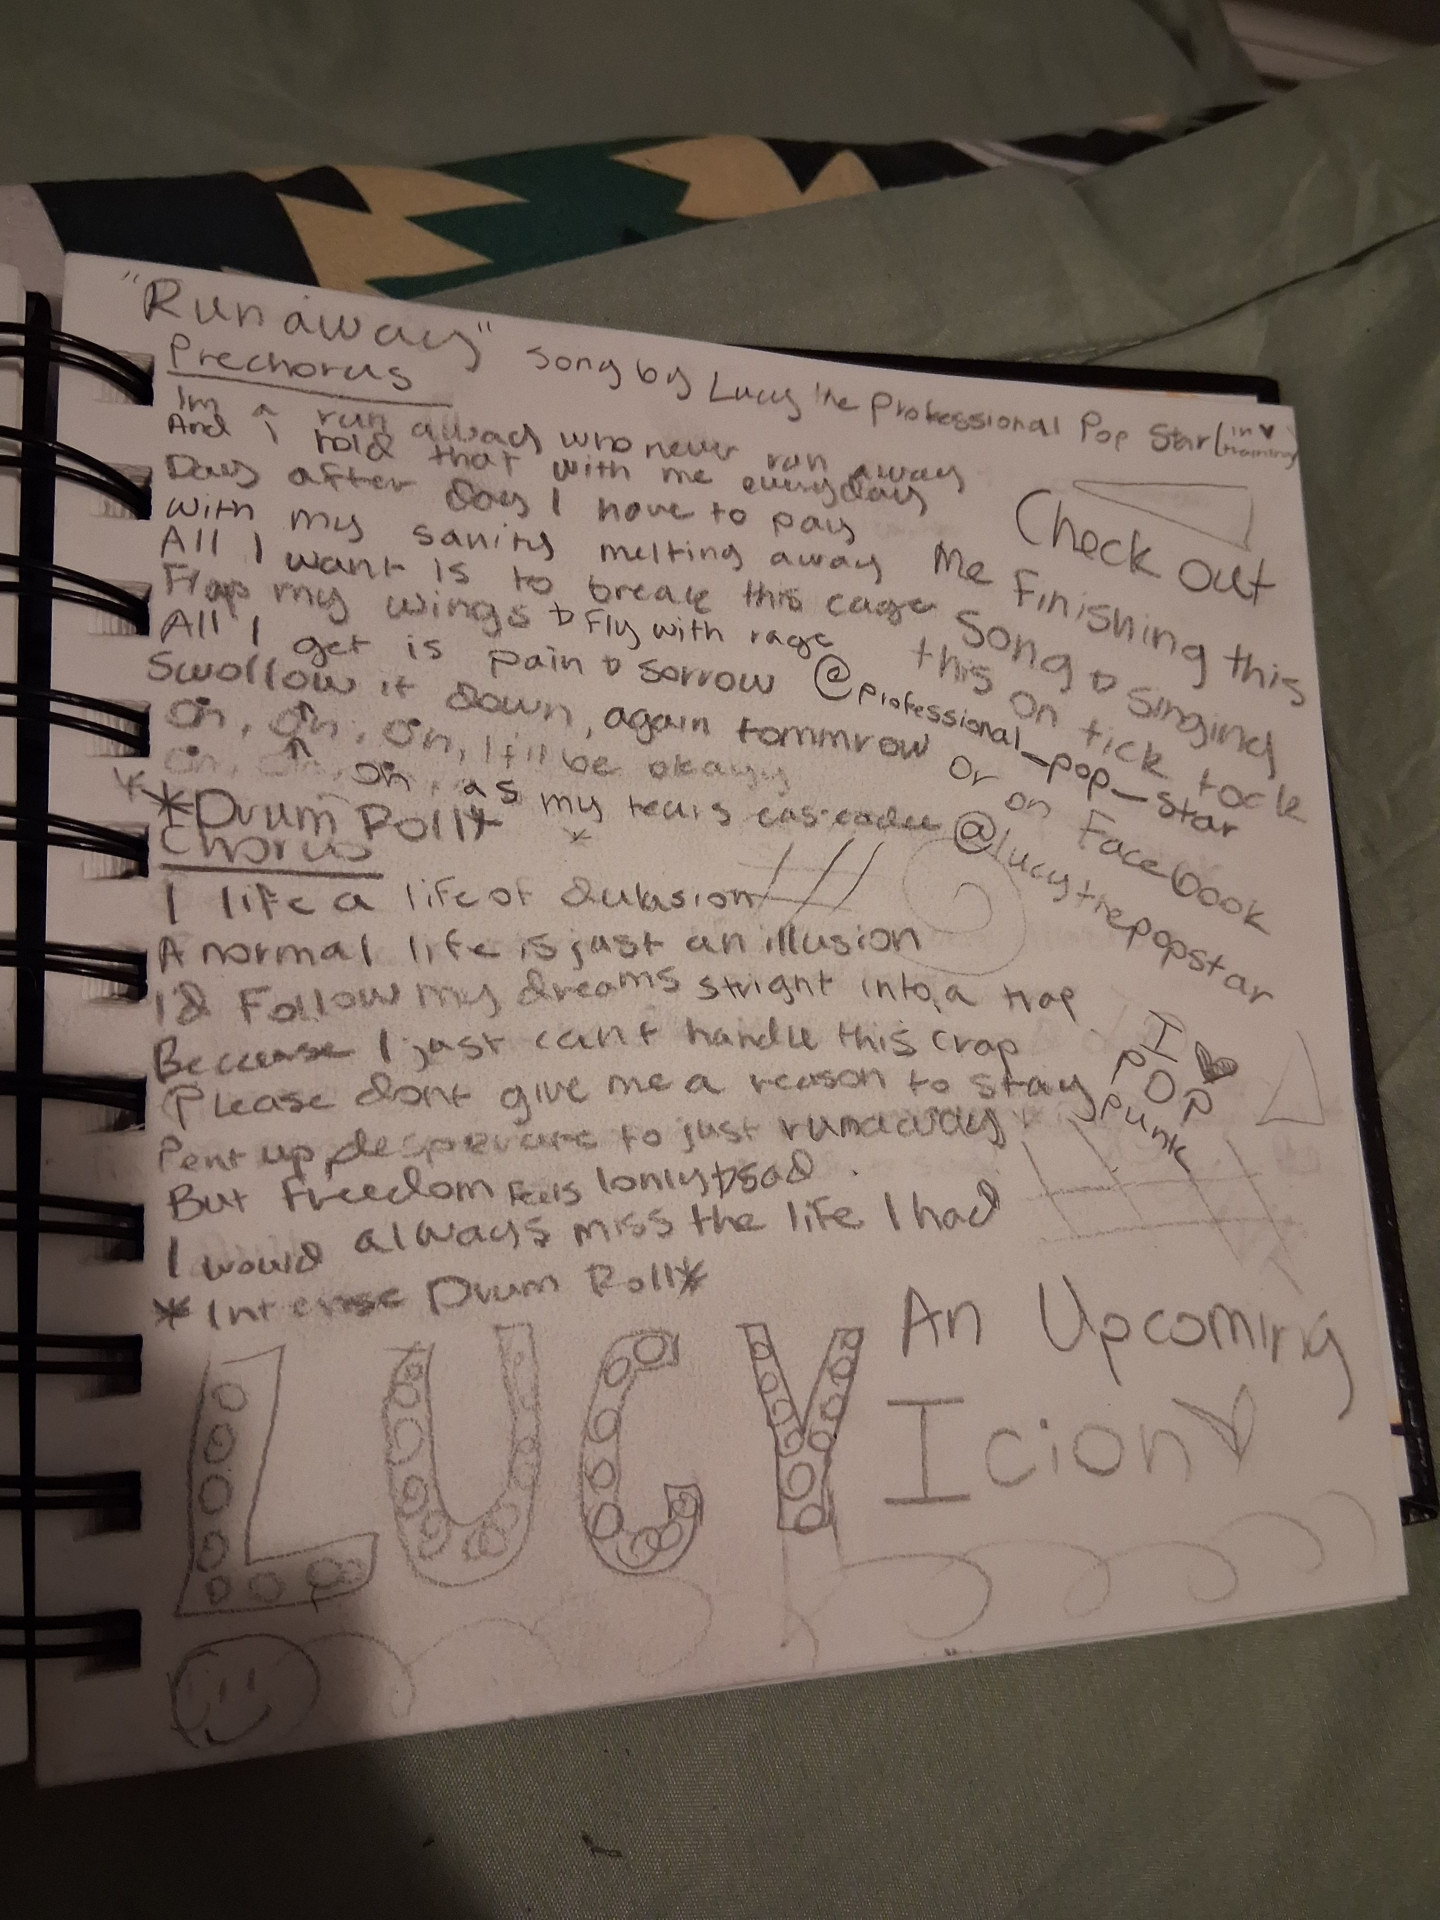 "Run away" Song by Lucy the Professional Pop Star (in training)
Prechorus
Im a run away who never run away
And I hold that with me everyday
Day after day I have to pay
With my sanity melting away
All I want is to break this cage
Flap my wings & Fly with rage
All I get is pain & sorrow
Swollow it down, again tommrow
Oh, Oh, Oh, It'll be okayy
Oh, Oh, Oh, as my tears cascade
*Drum Roll*
Chorus
I life a life of dulusion
A normal life is just an illusion
Id Follow my dreams stright into a trap
Because I just can't handle this crap
Please dont give me a reason to stay
Pent up, desperate to just runaway
But freedom feels lonly & sad
I would always miss the life I had
*Intense Drum Roll*
Check out
Me Finishing this
Song & Singing
this on tick tock
@professional_pop_star
or on Facebook
@lucythepopstar
I
POP
Punk
LUCY
An Upcoming
Icion